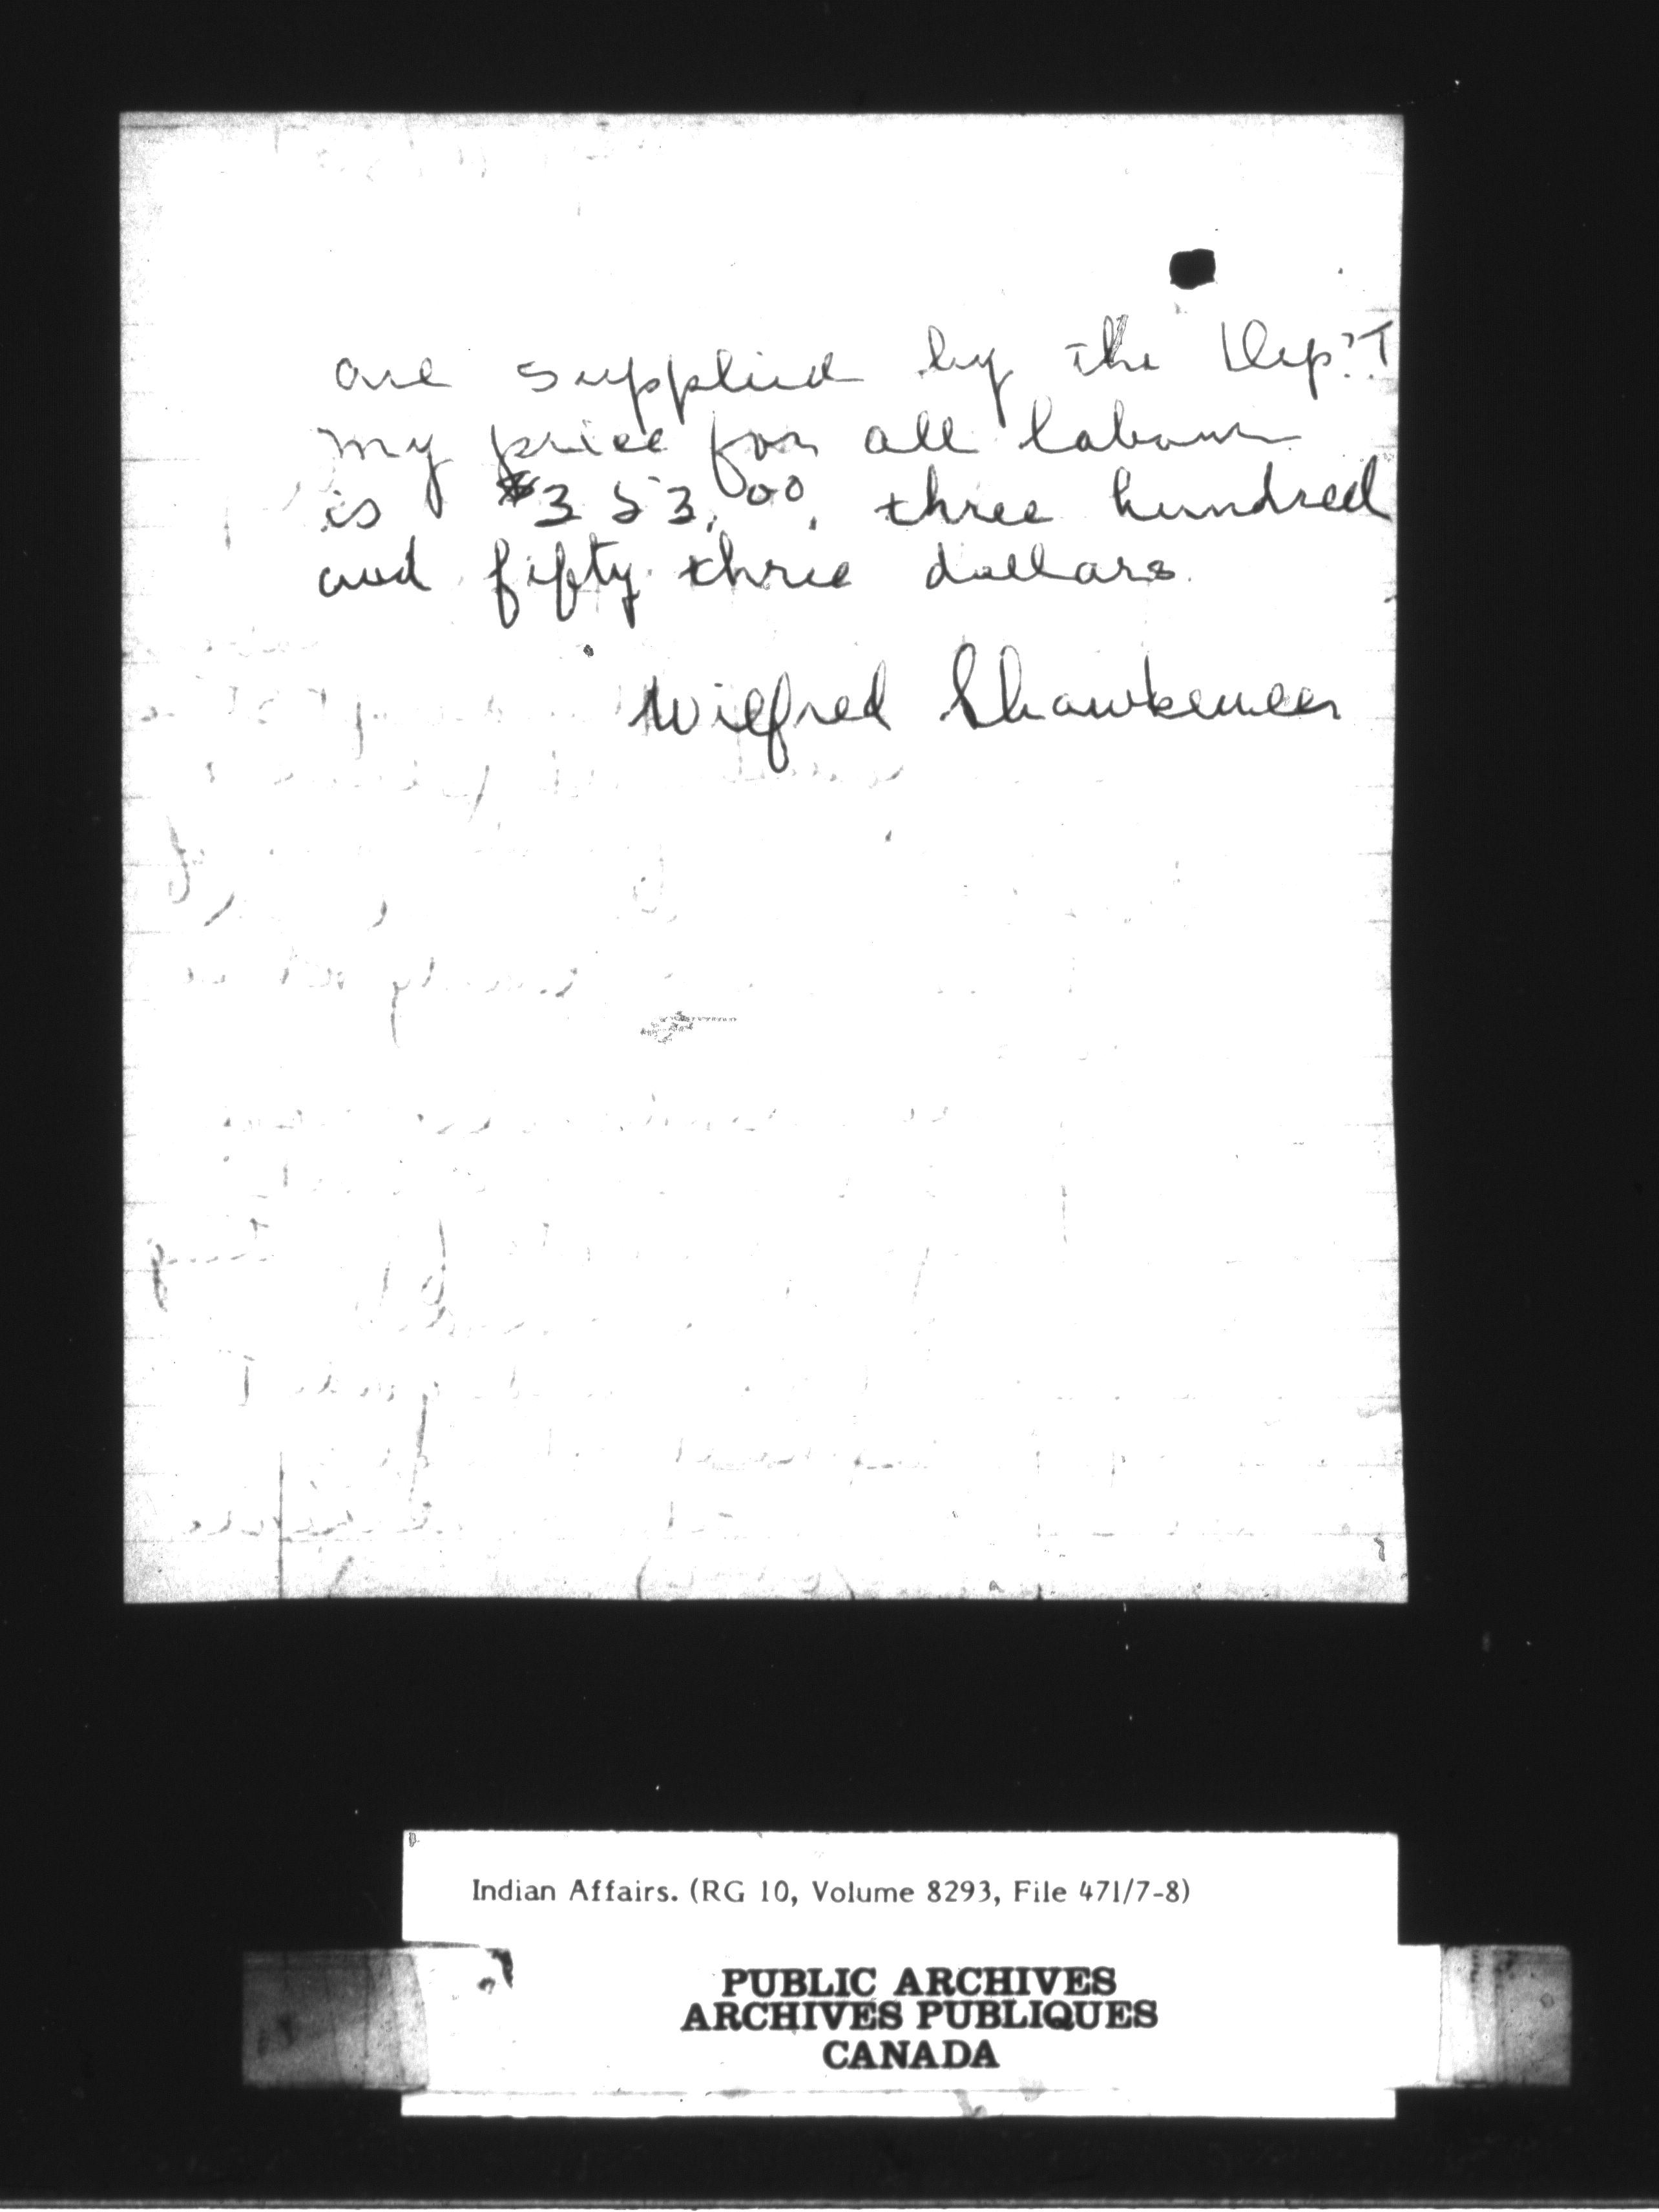 are supplied by the Dep't
my price for all labour
is $353.00. three hundred
and fifty three dollars.
Wilfred Shawkence
Indian Affairs. (RG 10, Volume 8293, File 471/7-8)
PUBLIC ARCHIVES
ARCHIVES PUBLIQUES
CANADA